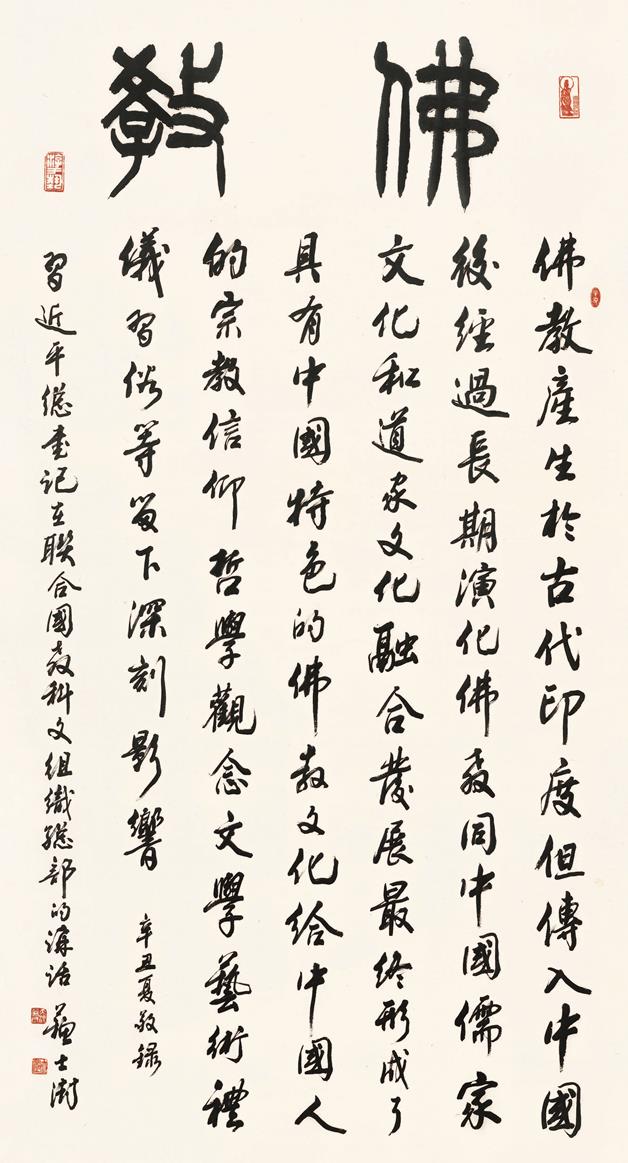 佛教
佛教產生於古代印度但傳入中國
後經過長期演化佛教同中國儒家
文化和道家文化融合發展最終形成了
具有中國特色的佛教文化給中國人
的宗教信仰哲學觀念文學藝術禮
儀習俗等留下深刻影響
辛丑夏敬録
習近平總書記在聯合國教科文組織總部的講話
蘇士澍